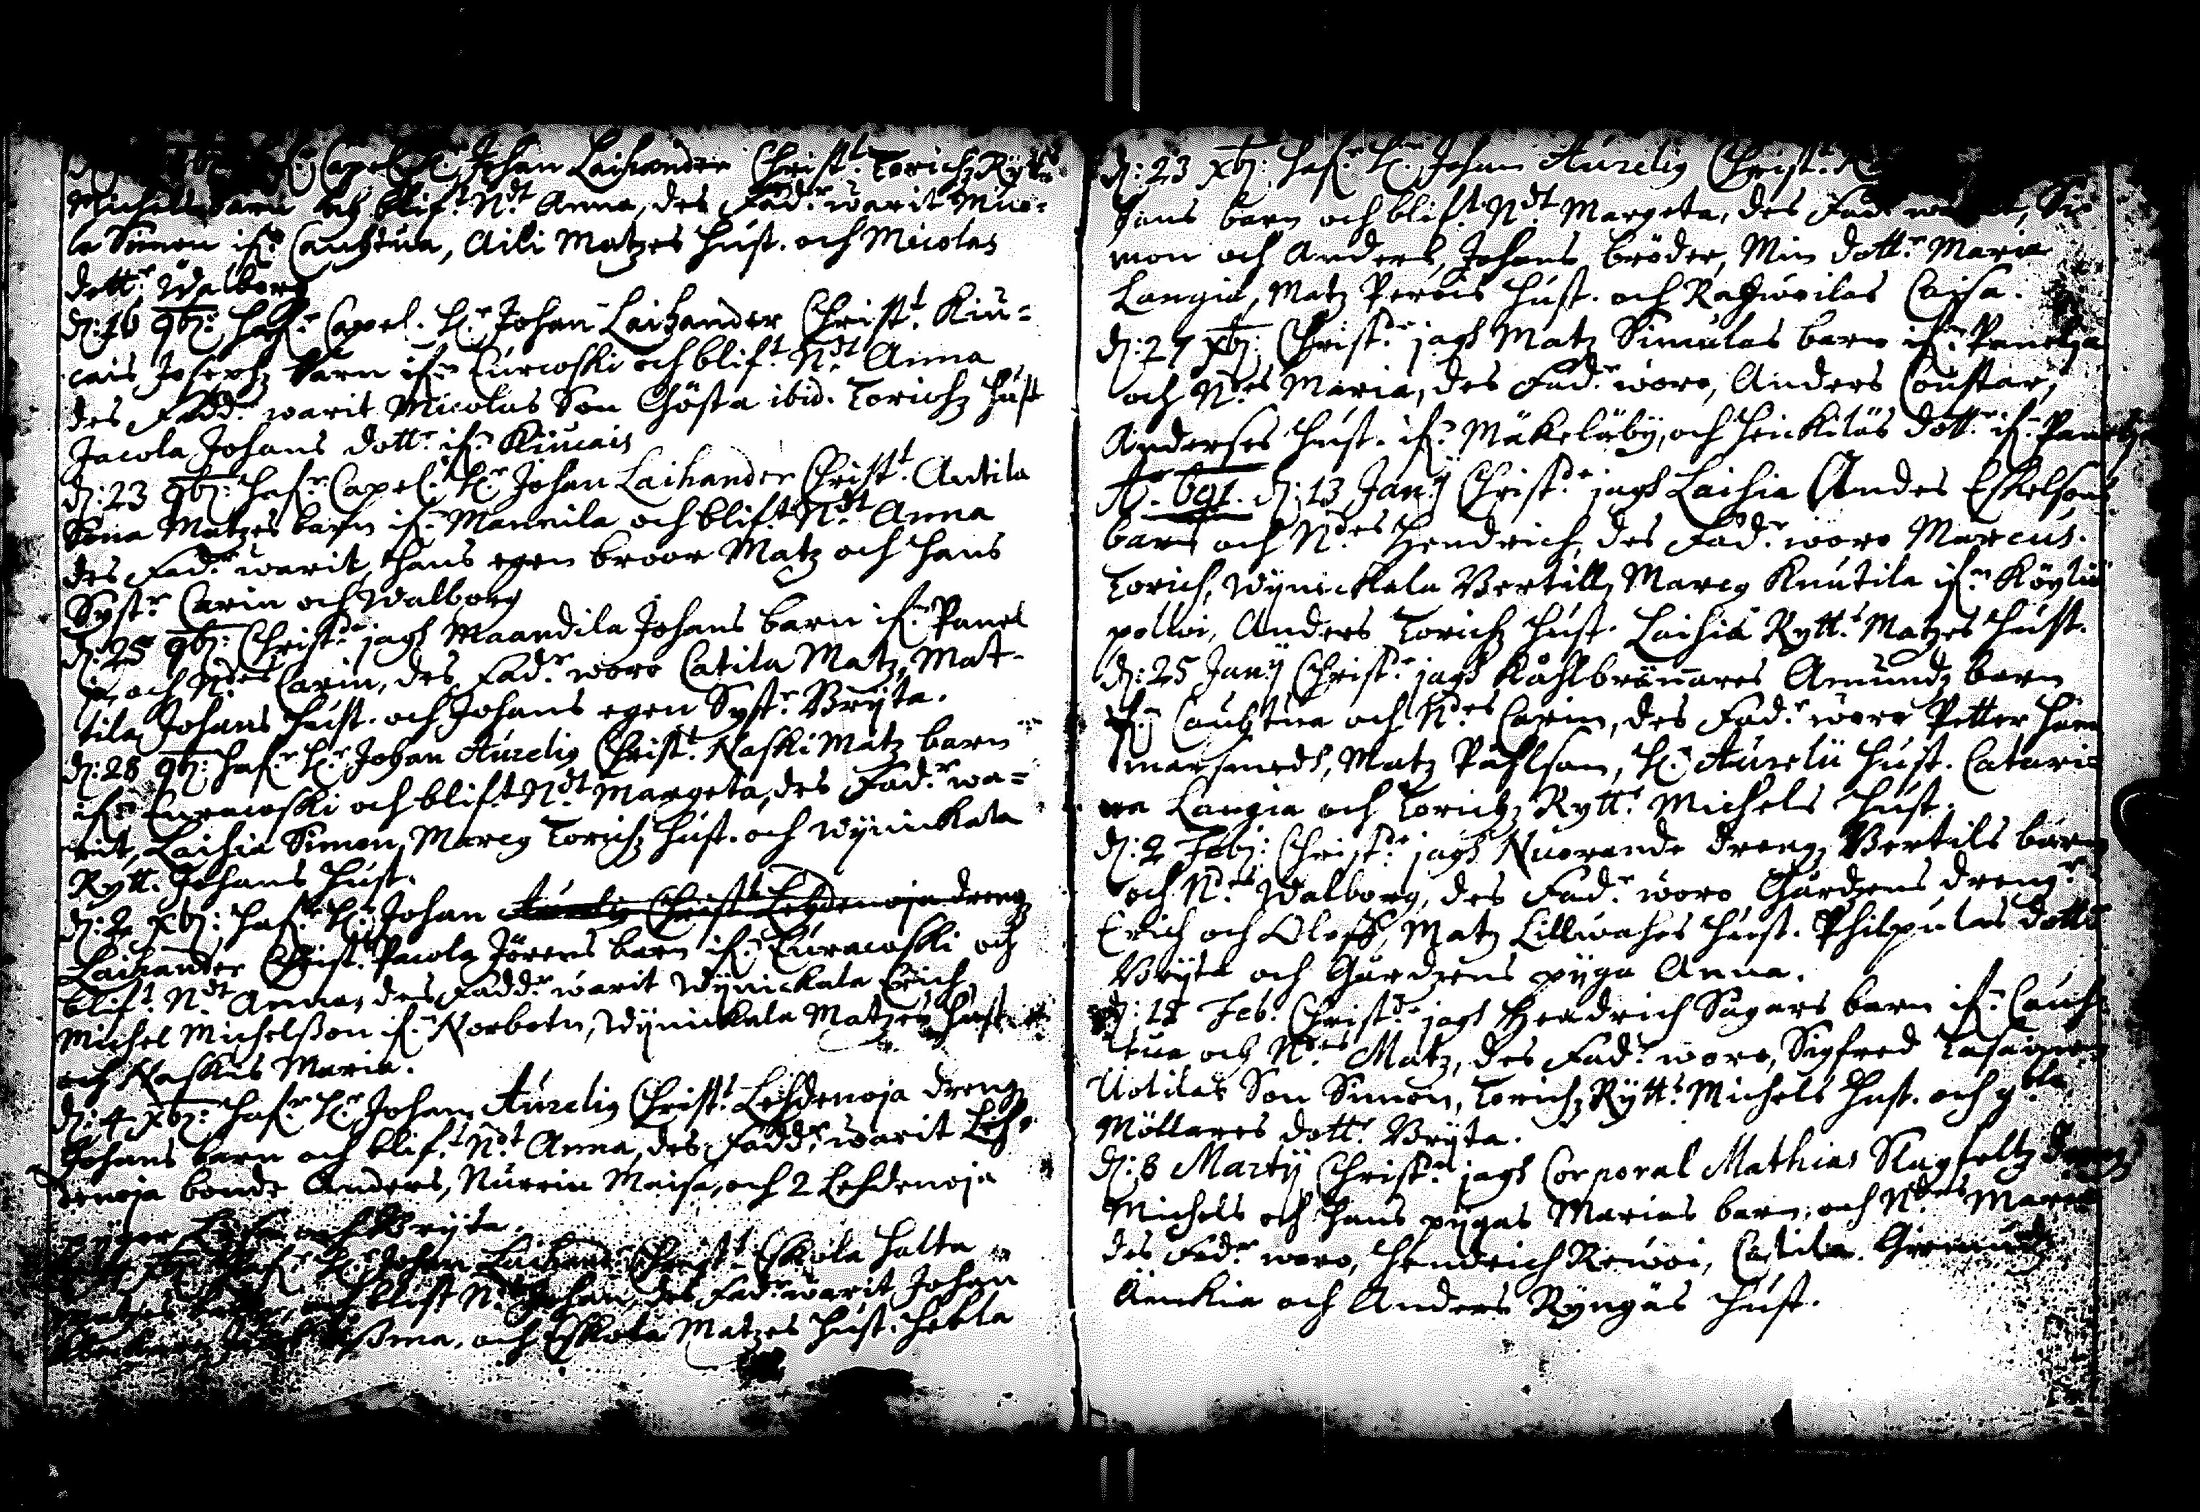 Capel. H:r Johan Laihander Christ:t Torichz Rytt:s
Michels barn och blif:t N:dt Anna, des Fadd:r warit Mico-
la Simon if:n Cauhtua, Aili Matzes Hust. och Micolas
dott:r Walborg
d: 16 9br: Haf:r Capel. H:r Johan Laihander Christ:t Kiu-
cais Josephz barn if:n Eurwoski och blif:t N:dt Anna
des Fadd:r warit Micolas Son Gösta ibid. Torichz Hust
Jacola Johans dott:r if:n Kiucais
d: 23 9br: Haf:r Capel. H:r Johan Laihander Christ:t Antila
Sona Matzes barn if:n Mannila och blif:t N:dt Anna
des Fad:r warit, hans egen broor Matz och hans
Syst:r Carin och Walborg
d: 25 9br: Christ:de jagh Maandila Johans barn if:n Panel
ia och N:des Carin, des Fad:r woro Catila Matz, Mat-
tila Johans Hust. och Johans egen Syst:r Bryta.
d: 28 9br: Haf:r H:r Johan Aurelig Christ:t Naski Matz barn
if:n Eurawoski och blif:t N:dt Margeta, des Fad:r wa-
rit, Laihia Simon, Marcg Torichz Hust. och Wynickala
Rytt. Johans Hust.
d: 2 Xbr: Haf:r H:r Johan Aurelig Christ:t Lehdenoja drengz
Laihander Christ:t Pacola Jörens barn if:n Eurawoski och
blif:t N:dt Anna, des Fadd:r warit Wynickala Erich,
Michel Michelsson if:n Norbotn, Wynickala Matzes Hust.
och Naskis Maria.
d: 4 Xbr: Haf:r H:r Johan Aurelig Christ:t Lehdenoja drengz
Johans barn och blif:t N:dt Anna, des Fadd:r warit Leh-
denoja bonde Anders, Nurrin Maisa, och 2 Lehdenoja
pyger och Bryta.
Haf:r H:r Johan Laihand:r Christ:t Eskola Halta
Matzes och blift N:dt Johan, des Fad:r warit Johan
och Eskola Matzes Hust. Hebla
d: 23 Xbr: Haf:r H:r Johan Aurelig Christ:t
Jons barn och blif:t N:dt Margeta, des Fad:r warit, Si-
mon och Anders, Johans bröder, Min dott:r Maria
Langia, Matz Perois Hust. och Rahwoilas Caisa.
d: 27 Xbr: Christ:de jagh Matz Simulas barn if:n Panelja
och N:des Maria, des Fad:r woro, Anders Coustar,
Anderses Hust. if:n Mäkeläby, och Heickiläs dott:r if:n Panelja
A:o 691. d: 13 Janij Christ:de jagh Laihia Andes Eskelsons
barn och N:des Hendrich, des Fad:r woro Marcus.
Torich, Wynickala Bertill, Marcg Knutila if:n Köyliö
polwi, Anders Torichz Hust. Laihia Rytt:s Matzes Hust.
d: 25 Janij Christ:de jagh Kåhlbrännares Amundz barn
if:n Cauhtua och N:des Carin, des Fad:r woro Petter Ham
marsmedh, Matz Påhlson, H:r Aurelii Hust. Catari
na Langia och Torichz Rytt:s Michels Hust.
d: 2 Febr: Christ:de jagh Nuorande drengz Bertils barn
och N:des Walborg, des Fad:r woro Gårdzens dreng:r
Erich och Oleff, Matz Lillwahes Hust. Philpulas dott:r
Bryta och Gårdzens pyga Anna.
d: 18 Feb: Christ:de jagh Hendrich Sagars barn if:n Cauh-
tua och N:des Matz, des Fad:r woro, Sigfred
Uotilas Son Simon, Torichz Rytt:s Michels Hust. och g:bla
Möllares dott:r Bryta.
d: 8 Martij Christ:de jagh Corporal Mathias Slagfeltz drengz
Michels och hans pygas Marias barn, och N:des Maria
des Fad:r woro, Hendrich Rewoi, Catila
Äenkia och Anders Ryngäs Hust.